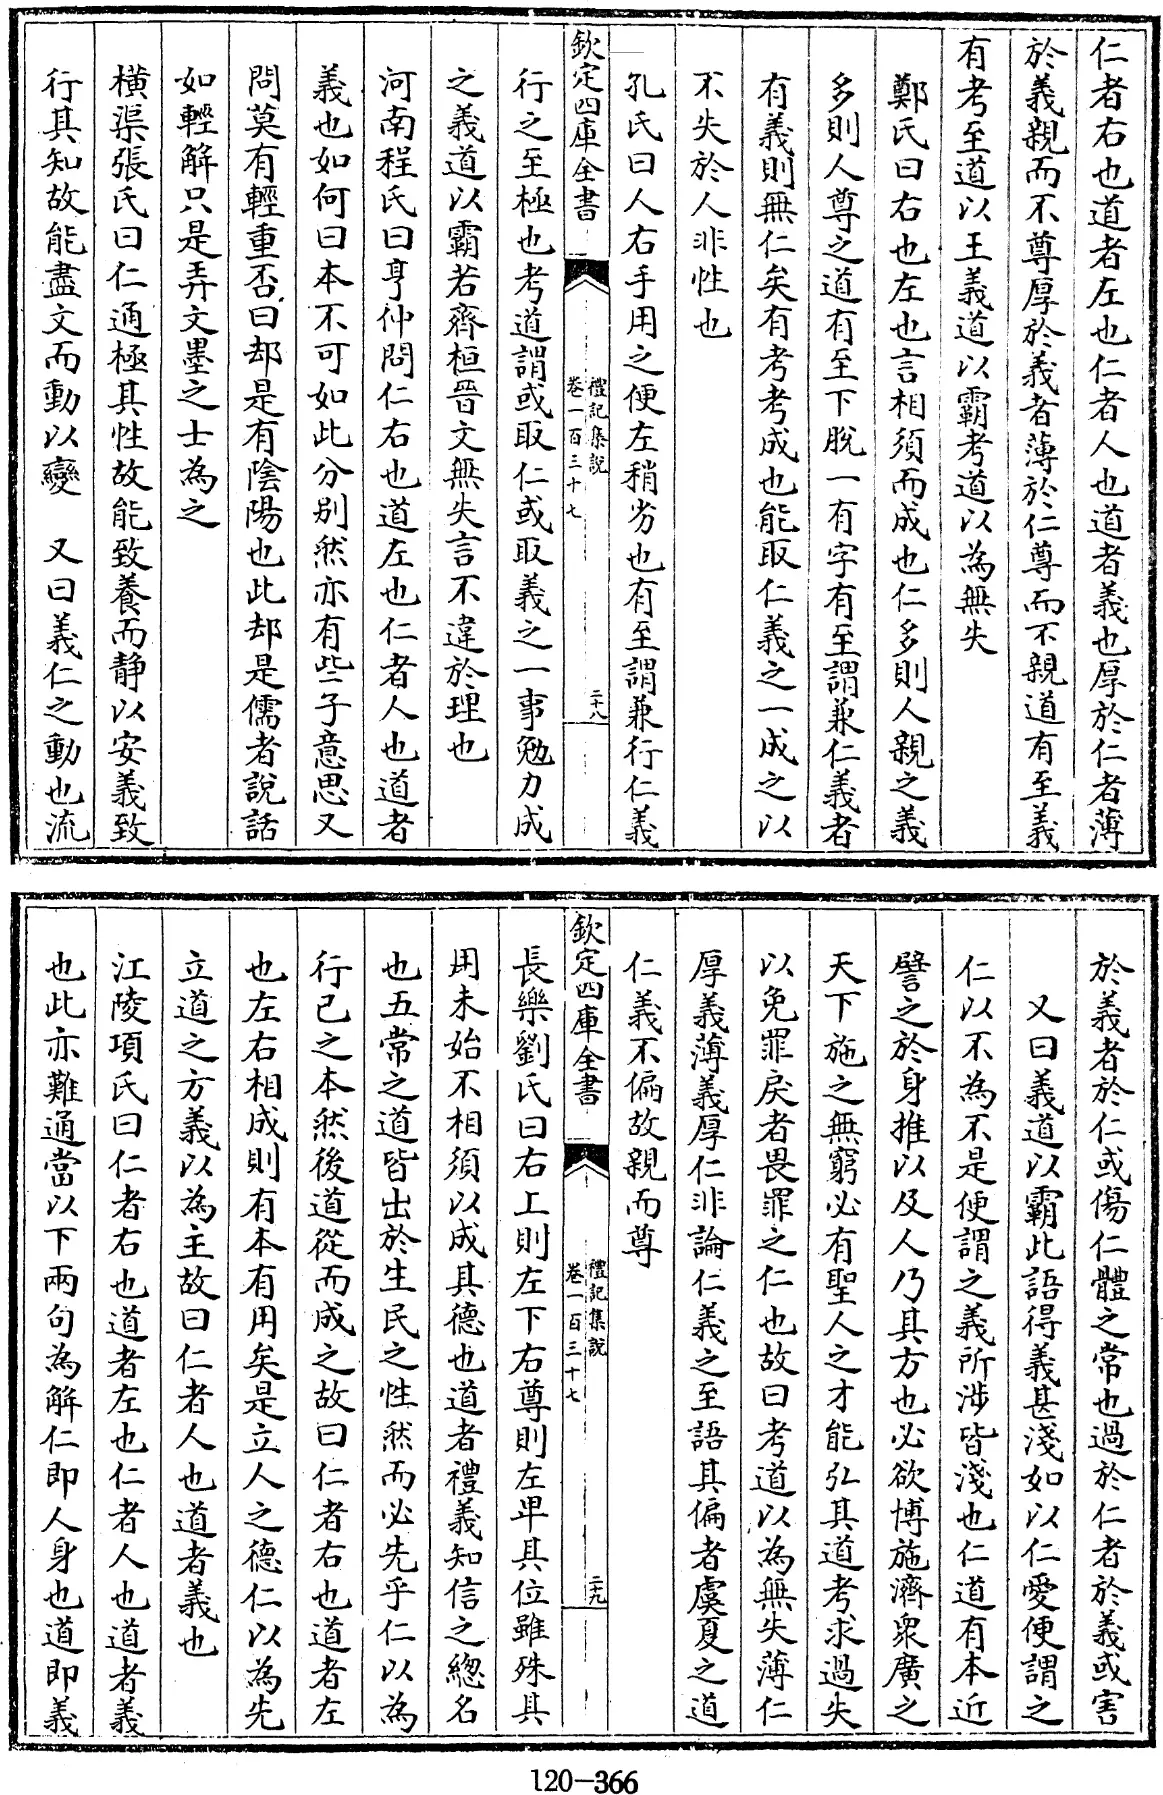 仁者右也道者左也仁者人也道者義也厚於仁者薄
於義親而不尊厚於義者薄於仁尊而不親道有至義
有考至道以王義道以霸考道以為無失
鄭氏曰右也左也言相須而成也仁多則人親之義
多則人尊之道有至下脫一有字有至謂兼仁義者
有義則無仁矣有考考成也能取仁義之一成之以
不失於人非性也
孔氏曰人右手用之便左稍劣也有至謂兼行仁義
欽定四庫全書
禮記集說
卷一百三十七
二十八
行之至極也考道謂或取仁或取義之一事勉力成
之義道以霸若齊桓晉文無失言不違於理也
河南程氏曰亨仲問仁右也道左也仁者人也道者
義也如何曰本不可如此分別然亦有些子意思又
問莫有輕重否曰却是有陰陽也此却是儒者說話
如輕解只是弄文墨之士為之
橫渠張氏曰仁通極其性故能致養而靜以安義致
行其知故能盡文而動以變 又曰義仁之動也流
於義者於仁或傷仁體之常也過於仁者於義或害
又曰義道以霸此語得義甚淺如以仁愛便謂之
仁以不為不是便謂之義所涉皆淺也仁道有本近
譬之於身推以及人乃其方也必欲博施濟衆廣之
天下施之無窮必有聖人之才能弘其道考求過失
以免罪戾者畏罪之仁也故曰考道以為無失薄仁
厚義薄義厚仁非論仁義之至語其偏者虞夏之道
仁義不偏故親而尊
欽定四庫全書
禮記集說
卷一百三十七
二十九
長樂劉氏曰右上則左下右尊則左卑其位雖殊其
用未始不相須以成其德也道者禮義知信之緫名
也五常之道皆出於生民之性然而必先乎仁以為
行己之本然後道從而成之故曰仁者右也道者左
也左右相成則有本有用矣是立人之德仁以為先
立道之方義以為主故曰仁者人也道者義也
江陵項氏曰仁者右也道者左也仁者人也道者義
也此亦難通當以下兩句為解仁即人身也道即義
120-366